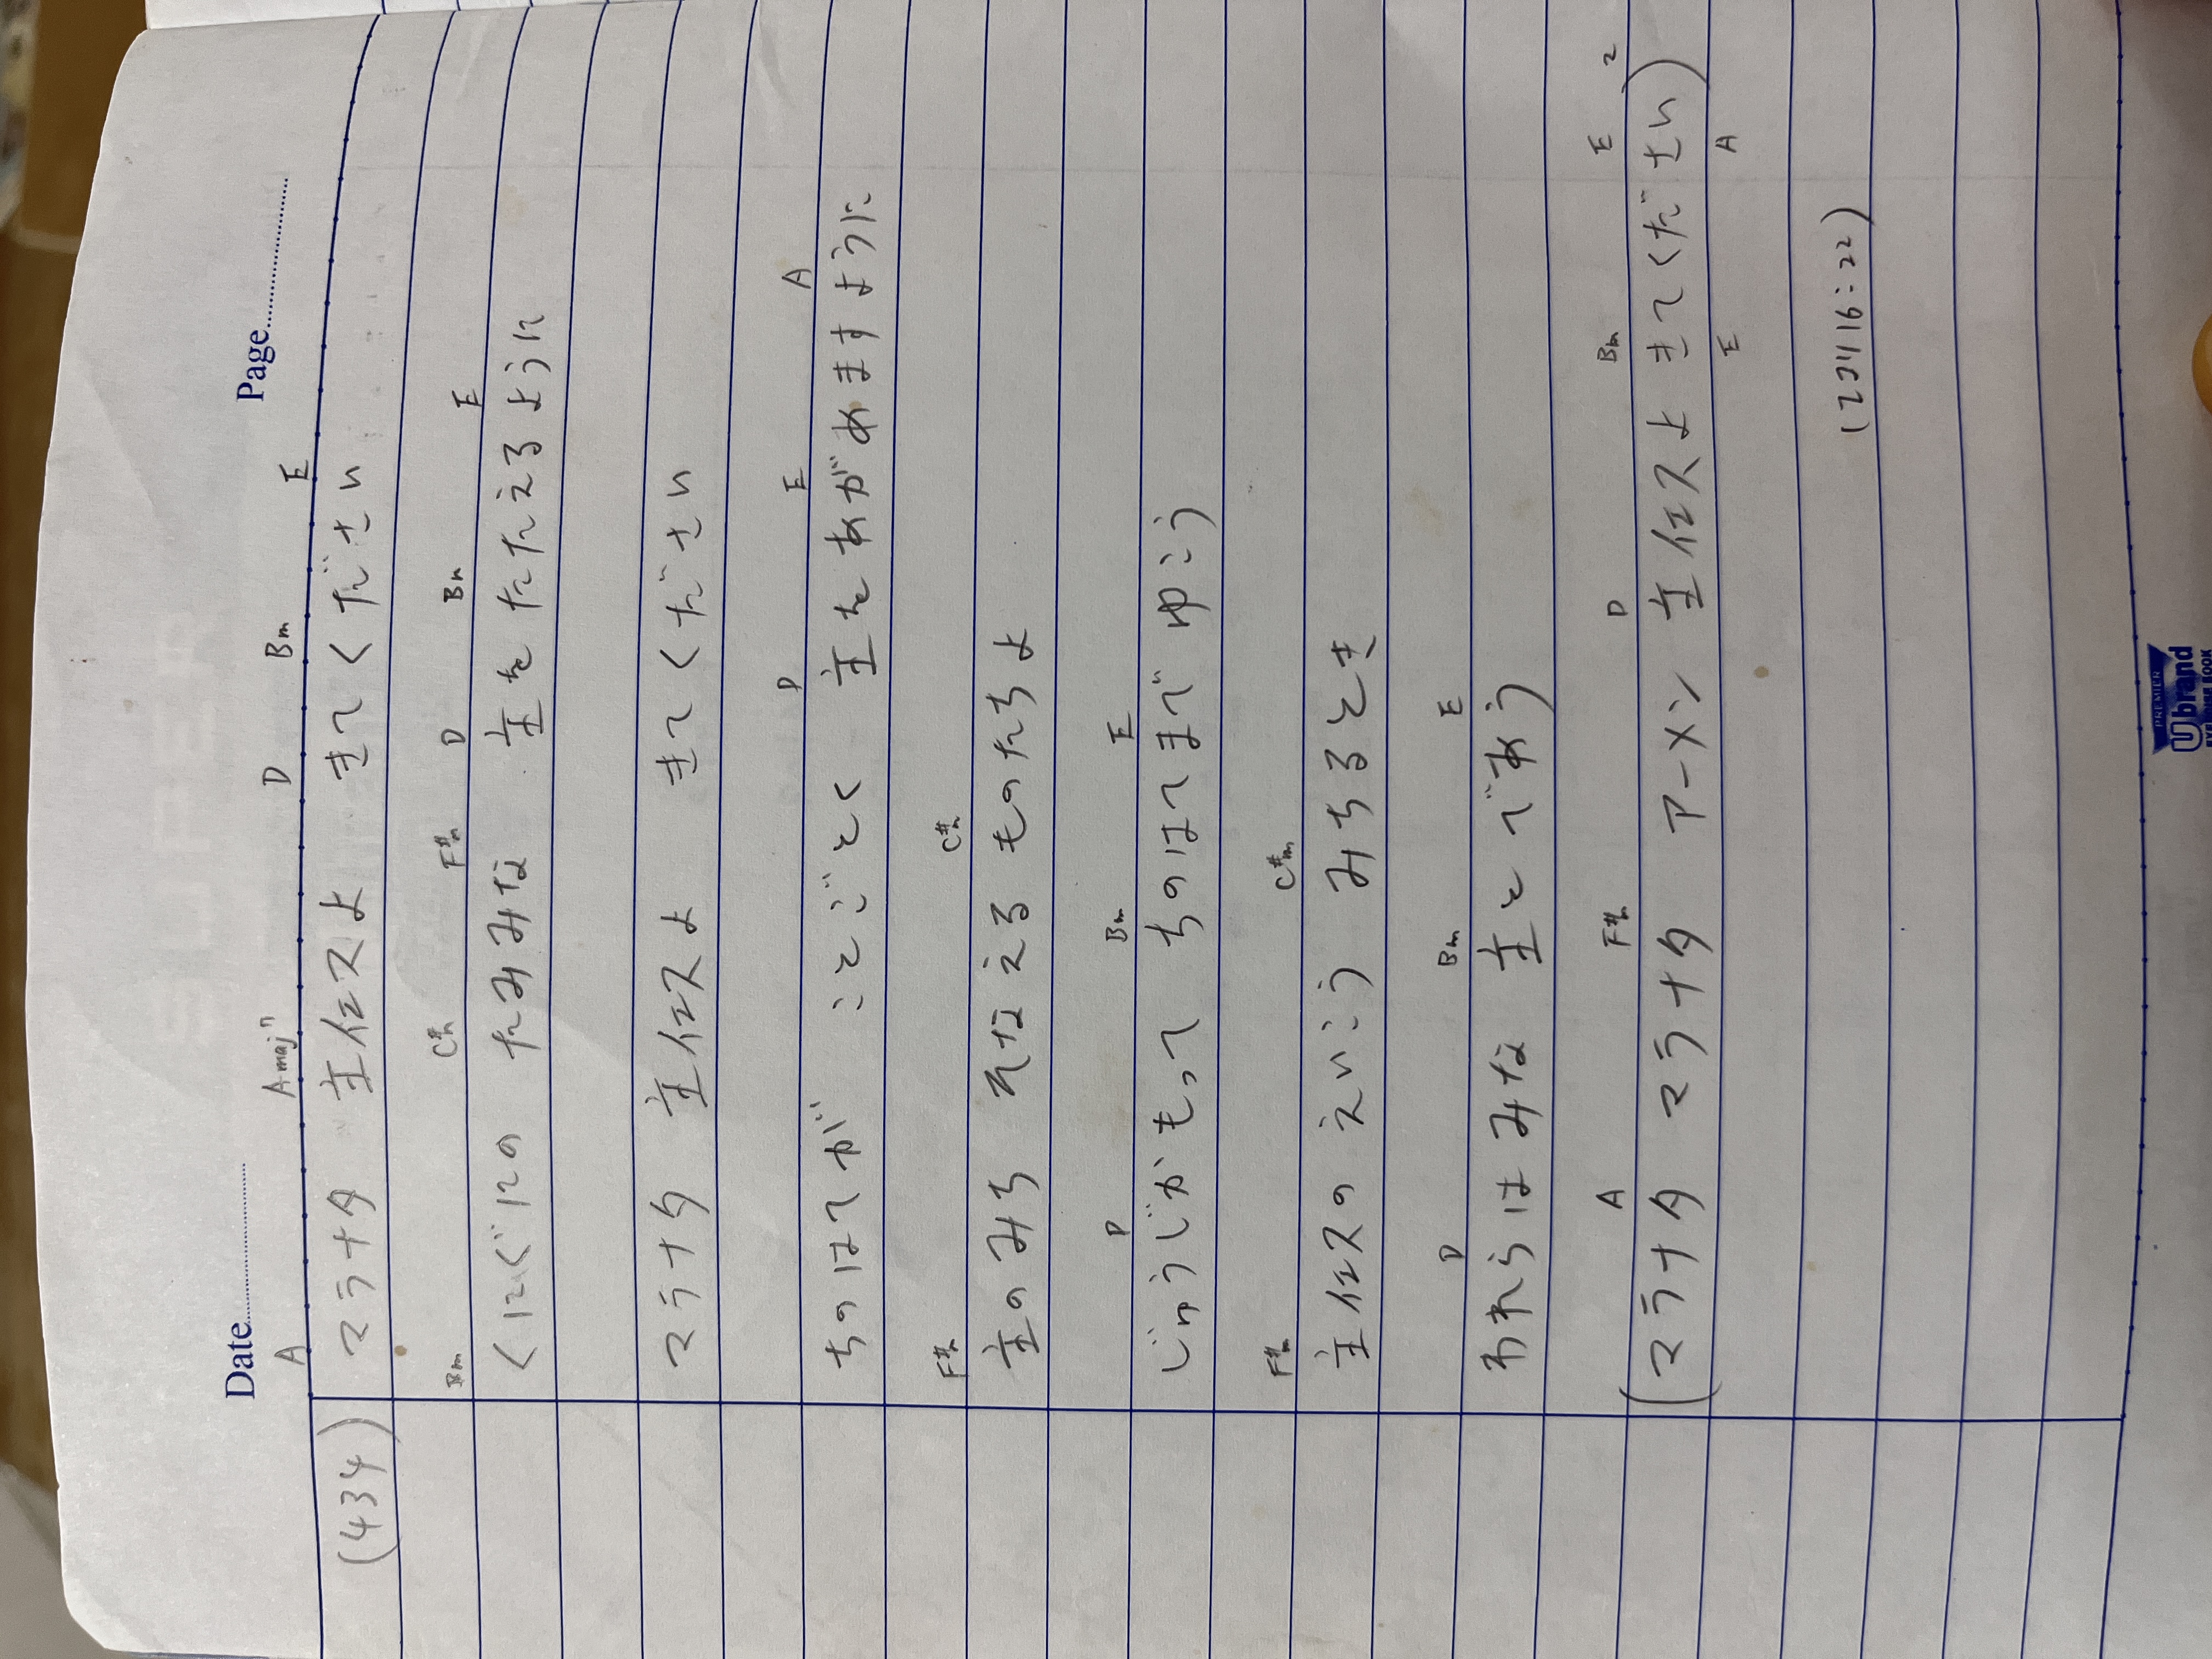 Date Page
A Amaj7 D Bm E
(434) マラナタ 主イエスよ きてください
Bm C#m F#m D Bm E
くにぐにの たみみな 主をたたえるように
マラナタ 主イエスよ きてください
D E A
ちのはてが ことごとく 主をあがめますように
F#m C#m
主のみち そなえる ものたちよ
D Bm E
じゅうじかもって ちのはてまで ゆこう
F#m C#m
主イエスの えいこう みちるとき
D Bm E
われらはみな 主とであう
A F#m D Bm E 2
(マラナタ マラナタ アーメン 主イエスよ きてください)
E A
(12コリ16:22)
PREMIER
Ubrand